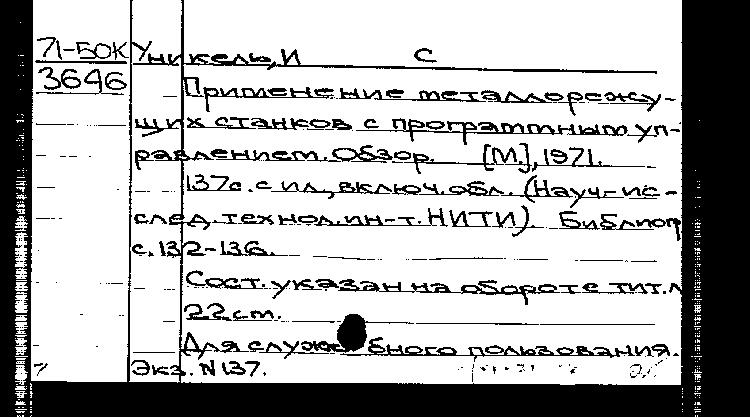 71-50К Уникель, И С
3646
Применение металлорежу-
щих станков с программным уп-
равлением. Обзор. [М.], 1971.
137с. с ил., включ. обл. (Науч.-ис-
след. технол. ин-т. НИТИ) Библиогр
с. 132-136.
Сост. указан на обороте тит. л
22 см.
Для служебного пользования.
Экз. N 137.